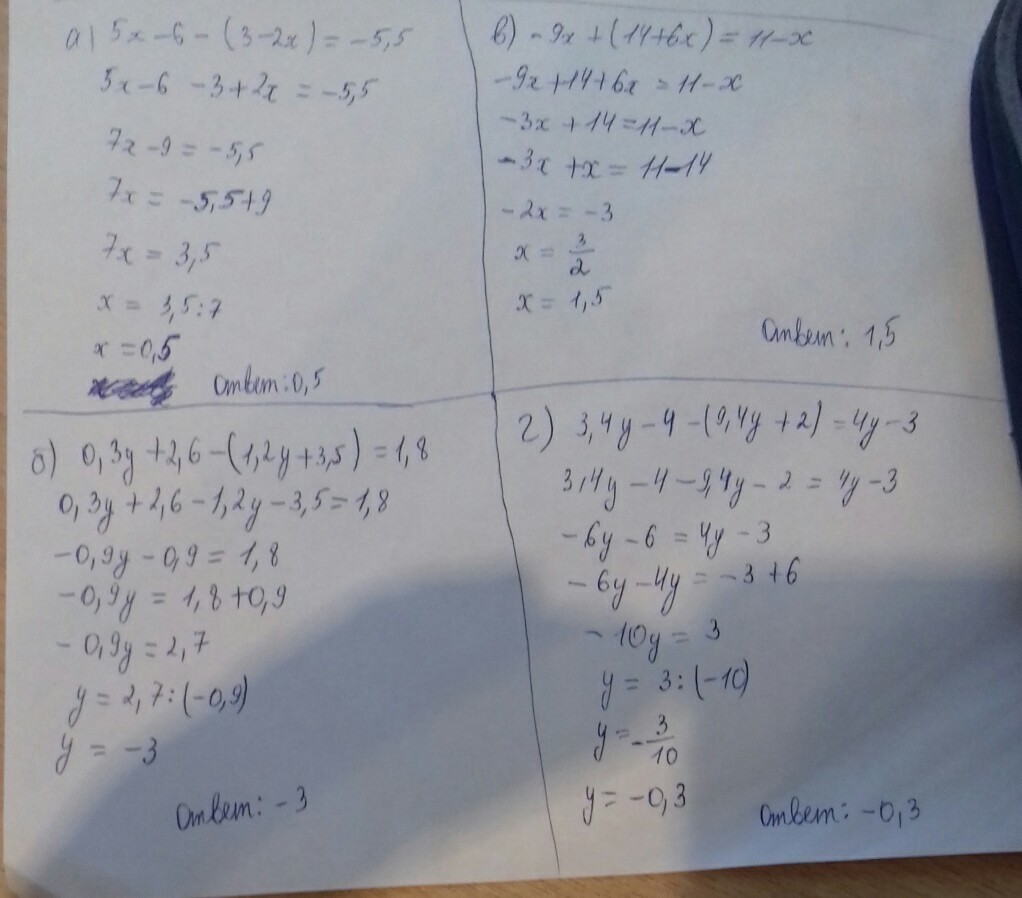 а) 5x-6-(3-2x)=-5,5
5x-6-3+2x=-5,5
7x-9=-5,5
7x=-5,5+9
7x=3,5
x=3,5:7
x=0,5
ответ:0,5
б) 0,3y+2,6-(1,2y+3,5)=1,8
0,3y+2,6-1,2y-3,5=1,8
-0,9y-0,9=1,8
-0,9y=1,8+0,9
-0,9y=2,7
y=2,7:(-0,9)
y=-3
ответ: -3
в) -9x+(14+6x)=11-x
-9x+14+6x=11-x
-3x+14=11-x
-3x+x=11-14
-2x=-3
x=3/2
x=1,5
ответ: 1,5
г) 3,4y-4-(9,4y+2)=4y-3
3,4y-4-9,4y-2=4y-3
-6y-6=4y-3
-6y-4y=-3+6
-10y=3
y=3:(-10)
y=-3/10
y=-0,3
ответ: -0,3